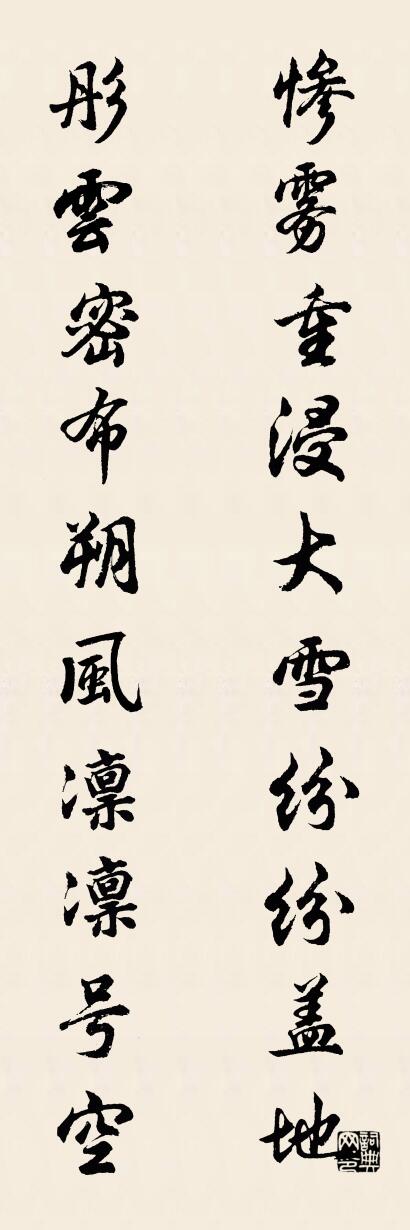 彤雲密布朔風凛凛号空
惨雾重浸大雪纷纷盖地
詞典网印